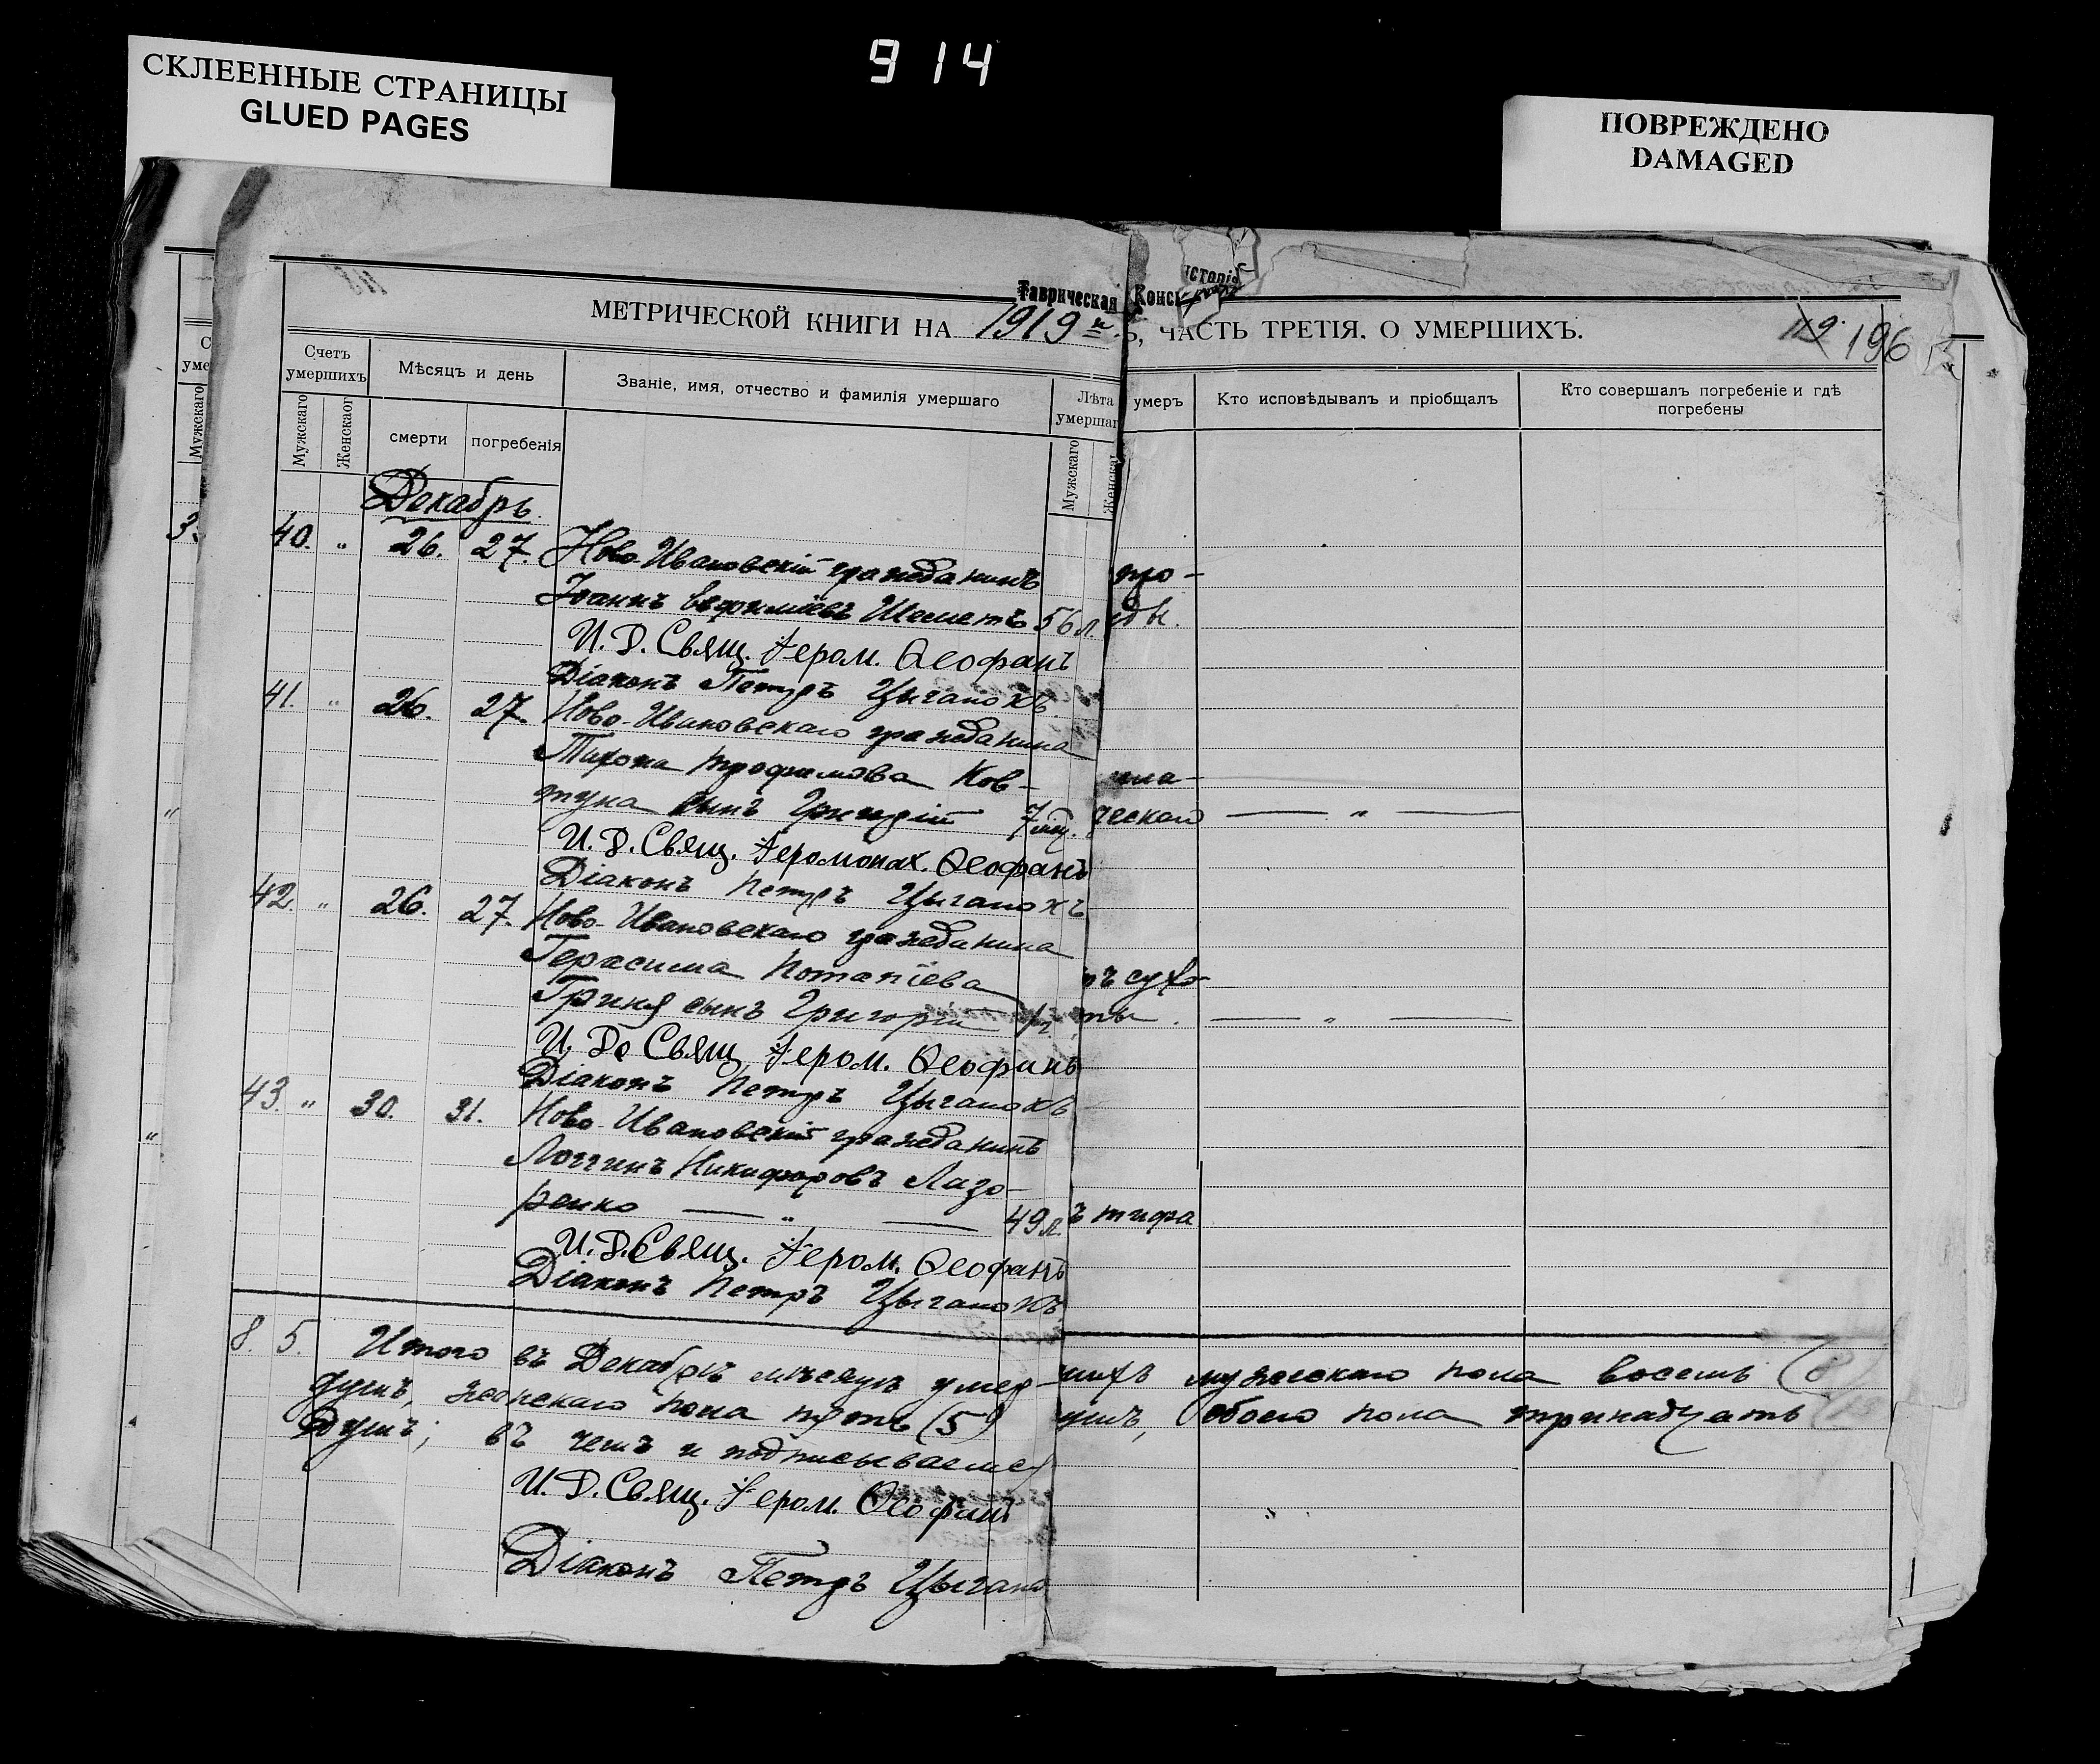 914
СКЛЕЕННЫЕ СТРАНИЦЫ
GLUED PAGES
ПОВРЕЖДЕНО
DAMAGED
Таврическая Конс
исторія
МЕТРИЧЕСКОЙ КНИГИ НА 1919 г. Ъ, ЧАСТЬ ТРЕТІЯ, О УМЕРШИХЪ.
119 196
Счетъ умершихъ
Мѣсяцъ и день
Званіе, имя, отчество и фамилія умершаго
Лѣта умершаг
умеръ
Кто исповѣдывалъ и пріобщалъ
Кто совершалъ погребеніе и гдѣ погребены
Мужскаго
Женскаог
смерти
погребенія
Мужскаго
Женска
Декабрь.
40. " 26. 27. Ново-Ивановскій гражданинъ
Іоаннъ Евфиміевъ Шеметъ 56 л.
И. Д. Свящ. Іером. Ѳеофанъ
Діаконъ Петръ Цыганокъ.
41. " 26. 27. Ново-Ивановскаго гражданина
Тихона Трофимова Ков-
туна сынъ Григорій 7 мц. ческаго — " —
И. Д. Свящ. Іеромонах. Ѳеофанъ
Діаконъ Петръ Цыганокъ
42. " 26. 27. Ново-Ивановскаго гражданина
Герасима Потапіева ъ сухо-
Гриня сынъ Григорій 1 г. ты. — " —
И. Д. Свящ. Іером. Ѳеофанъ
Діаконъ Петръ Цыганокъ
43. " 30. 31. Ново-Ивановскій гражданинъ
Логгинъ Никифоровъ Лазо-
ренко — " — 49 л. ъ тифа
И. Д. Свящ. Іером. Ѳеофанъ
Діаконъ Петръ Цыганокъ
8. 5. Итого въ Декабрѣ мѣсяцѣ умер шихъ мужескаго пола восемь (8)
душъ, женскаго пола пять (5) ушъ, обоего пола тринадцать
душъ; въ чемъ и подписываемся
И. Д. Свящ. Іером. Ѳеофанъ
Діаконъ Петръ Цыгано